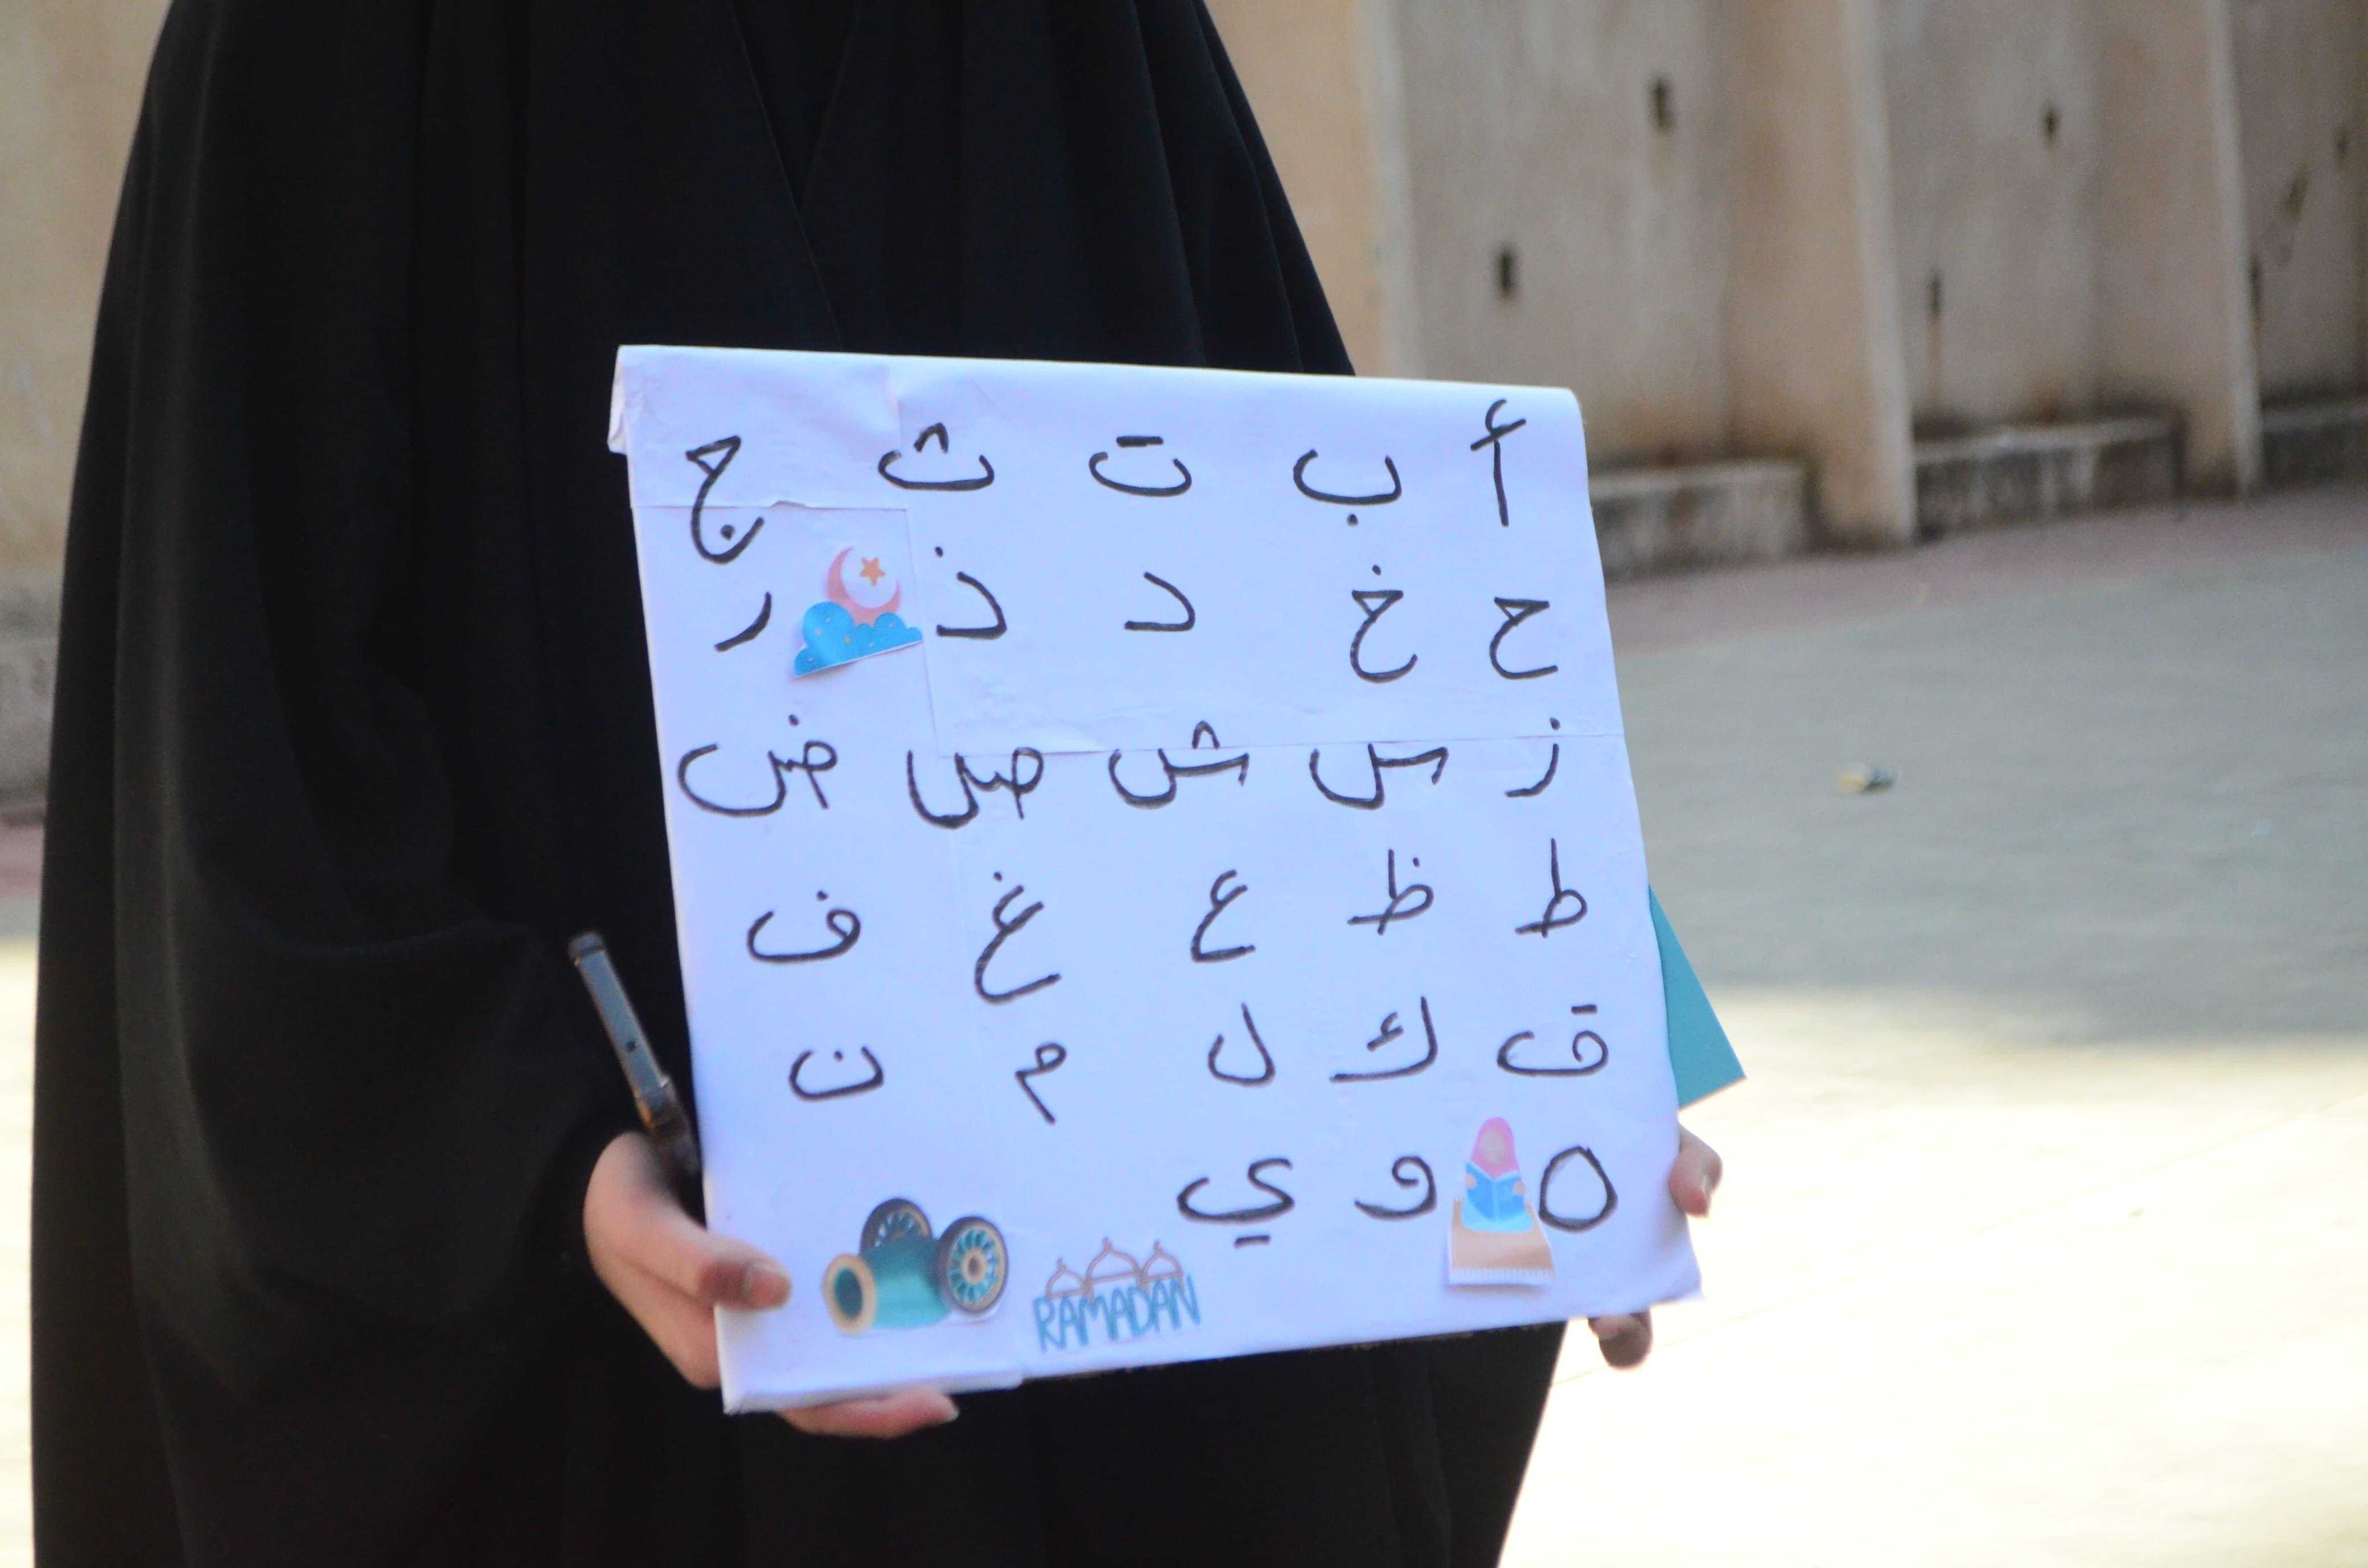 أ ب ت ث ج
ح خ د ذ ر
ز س ش ص ض
ط ظ ع غ ف
ق ك ل م ن
ه و ي
RAMADAN